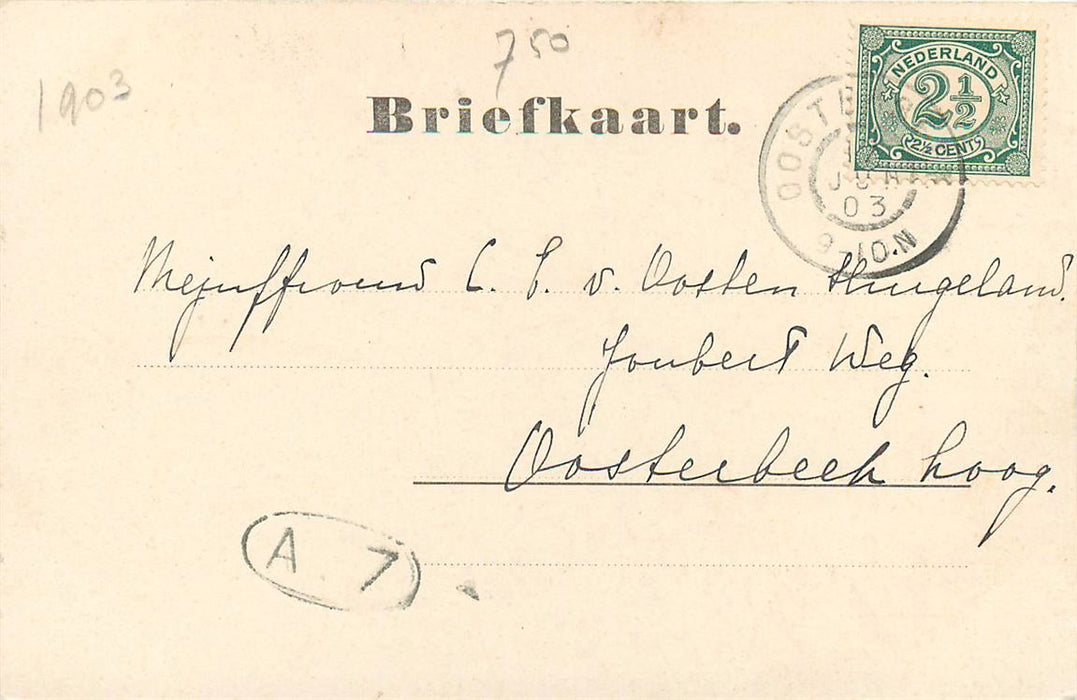 1903
750
Briefkaart.
NEDERLAND
2½
2½ CENT
OOSTERBEEK
JUN
03
9-10N
Mejuffrouw C. P. v. Oosten Slingeland.
Joubert Weg.
Oosterbeek hoog.
A. 7